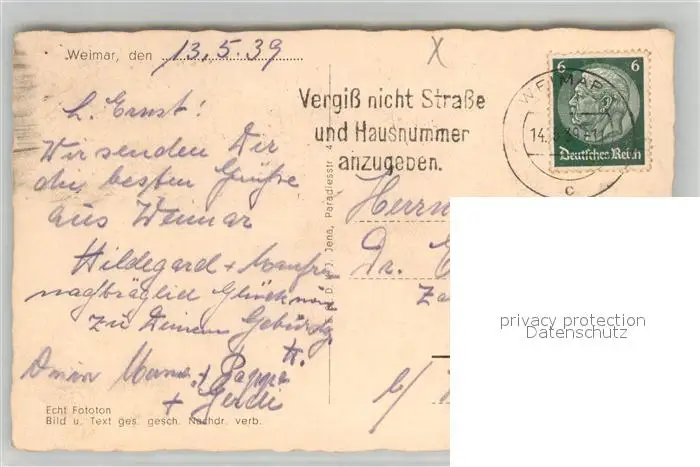 Weimar, den 13.5.39
X
6 6
Deutsches Reich
WEIMAR
14.5.39
c
Vergiß nicht Straße
und Hausnummer
anzugeben.
L. Ernst!
Wir senden Dir
die besten Grüße
aus Weimar
Hildegard + Manfred
nachträglich Glückwün
zu Deinem Geburtstg.
Deine Mama + Pappa
+ Gerdi
Herrn
Dr. E
b/
Jena, Paradiesstr 4
Echt Fototon
Bild u. Text ges. gesch. Nachdr. verb.
privacy protection
Datenschutz